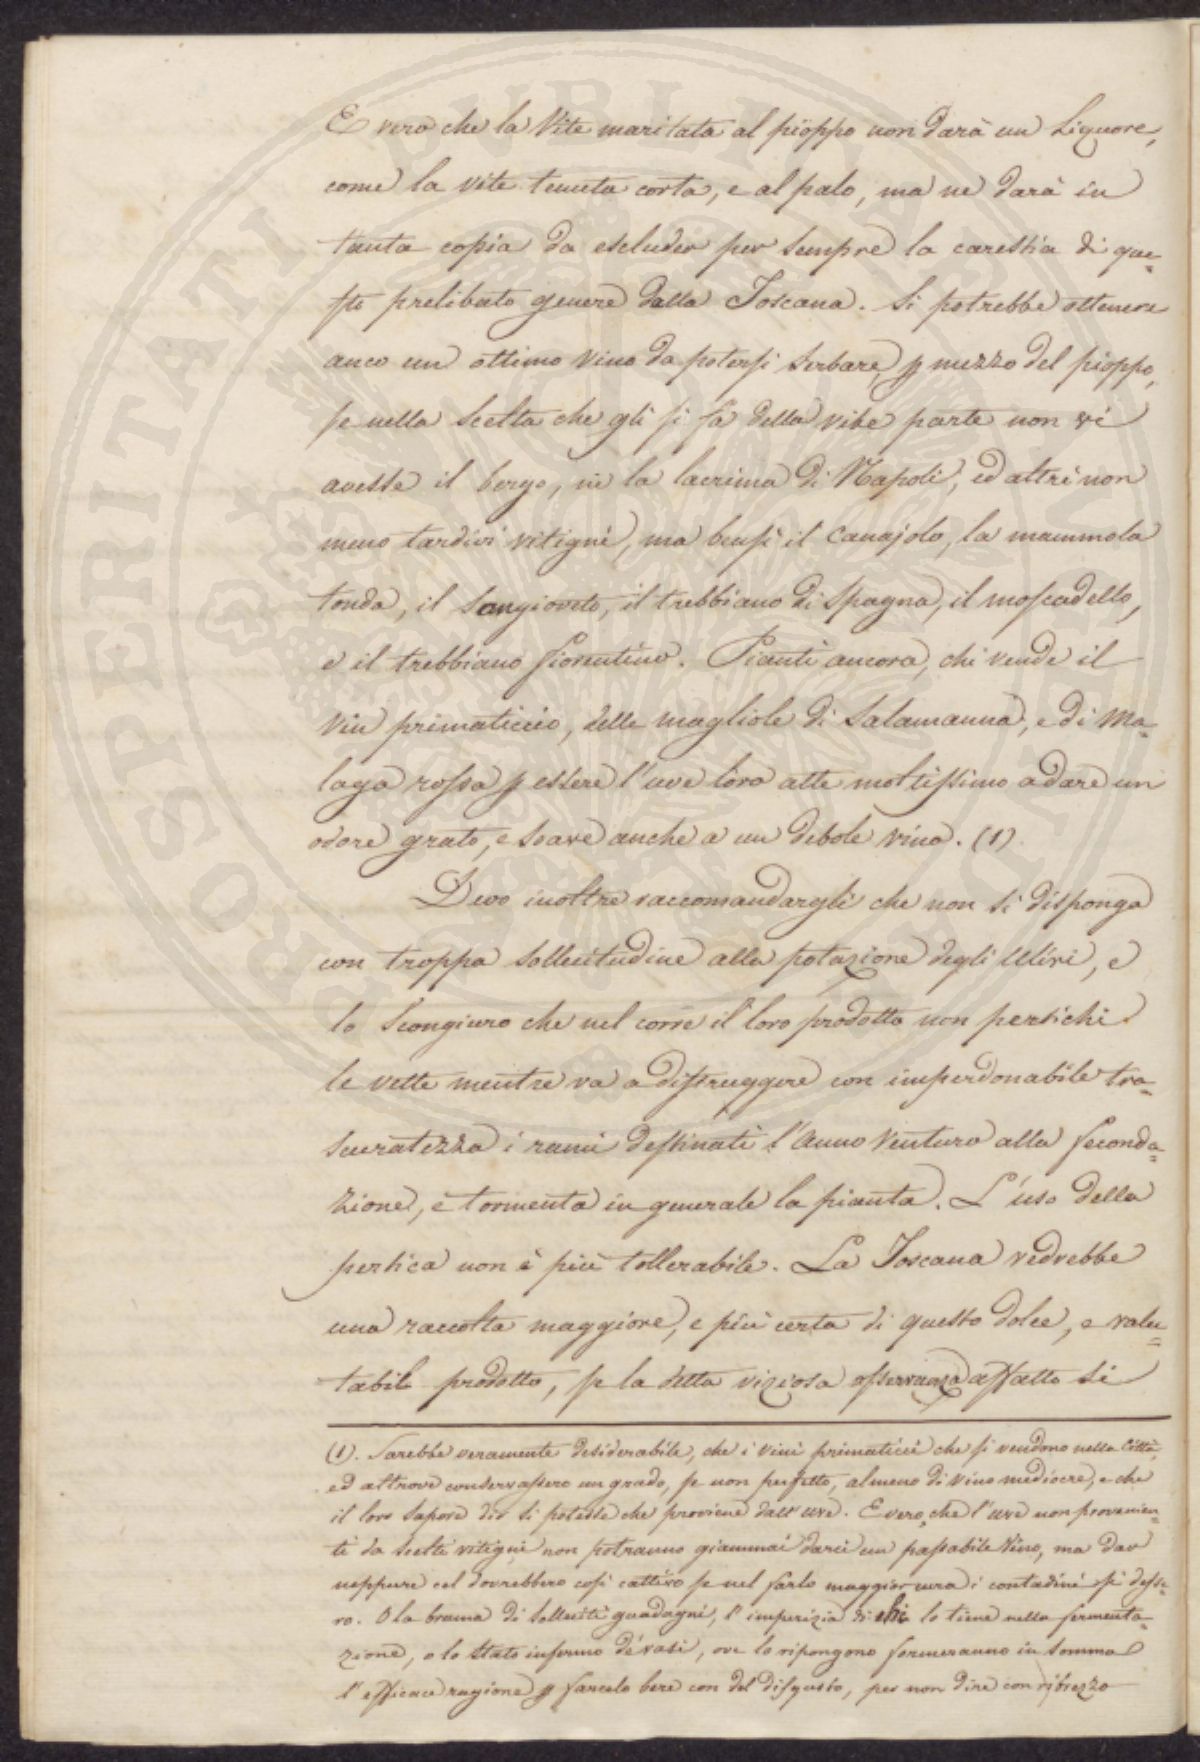 E vero che la Vite maritata al pioppo non darà un Liquore,
come la vite tenuta corta, e al palo, ma ne darà in
tanta copia da escluder per sempre la carestia di que=
sto prelibato genere dalla Toscana. Si potrebbe ottenere
anco un ottimo Vino da potersi serbare p mezzo del pioppo,
se nella scelta che gli si fa della vite parte non vi
avesse il borgo, nè la lacrima di Napoli, ed altri non
meno tardivi vitigni, ma bensì il Canajolo, la mammola
tonda, il Sangioveto, il trebbiano di Spagna, il moscadello,
e il trebbiano fiorentino. Pianti ancora, chi vende il
vin primaticcio, delle magliole di Salamanna, e di Ma=
laga rossa p essere l'uve loro atte moltissimo a dare un
odore grato, e soave anche a un debole vino. (1)
Devo inoltre raccomandargli che non si disponga
con troppa sollecitudine alla potazione degli Ulivi, e
lo scongiuro che nel corre il loro prodotto non pertichi
le vette mentre va a distruggere con imperdonabile tra=
scuratezza i rami destinati l'Anno Venturo alla feconda=
zione, e tormenta in generale la pianta. L'uso della
pertica non è più tollerabile. La Toscana vedrebbe
una raccolta maggiore, e più certa di questo dolce, e valu=
tabil prodotto, se la detta viziosa osservanza affatto si
(1). Sarebbe veramente desiderabile, che i vini primaticci che si vendono nella Città,
ed altrove conservassero un grado, se non perfetto, almeno di vino mediocre, e che
il loro sapore dir si potesse che proviene dall'uve. E vero, che l'uve non provenien=
ti da scelti vitigni non potranno giammai darci un passabile Vino, ma dar
neppure cel dovrebbero così cattivo se nel farlo maggior cura i contadini si desse=
ro. O la brama di solleciti guadagni, l'imperizia di chi lo tiene nella fermenta=
zione, o lo stato infermo de' vasi, ove lo ripongono formeranno in somma
l'efficace ragione p farcelo bere con del disgusto, per non dire con ribrezzo